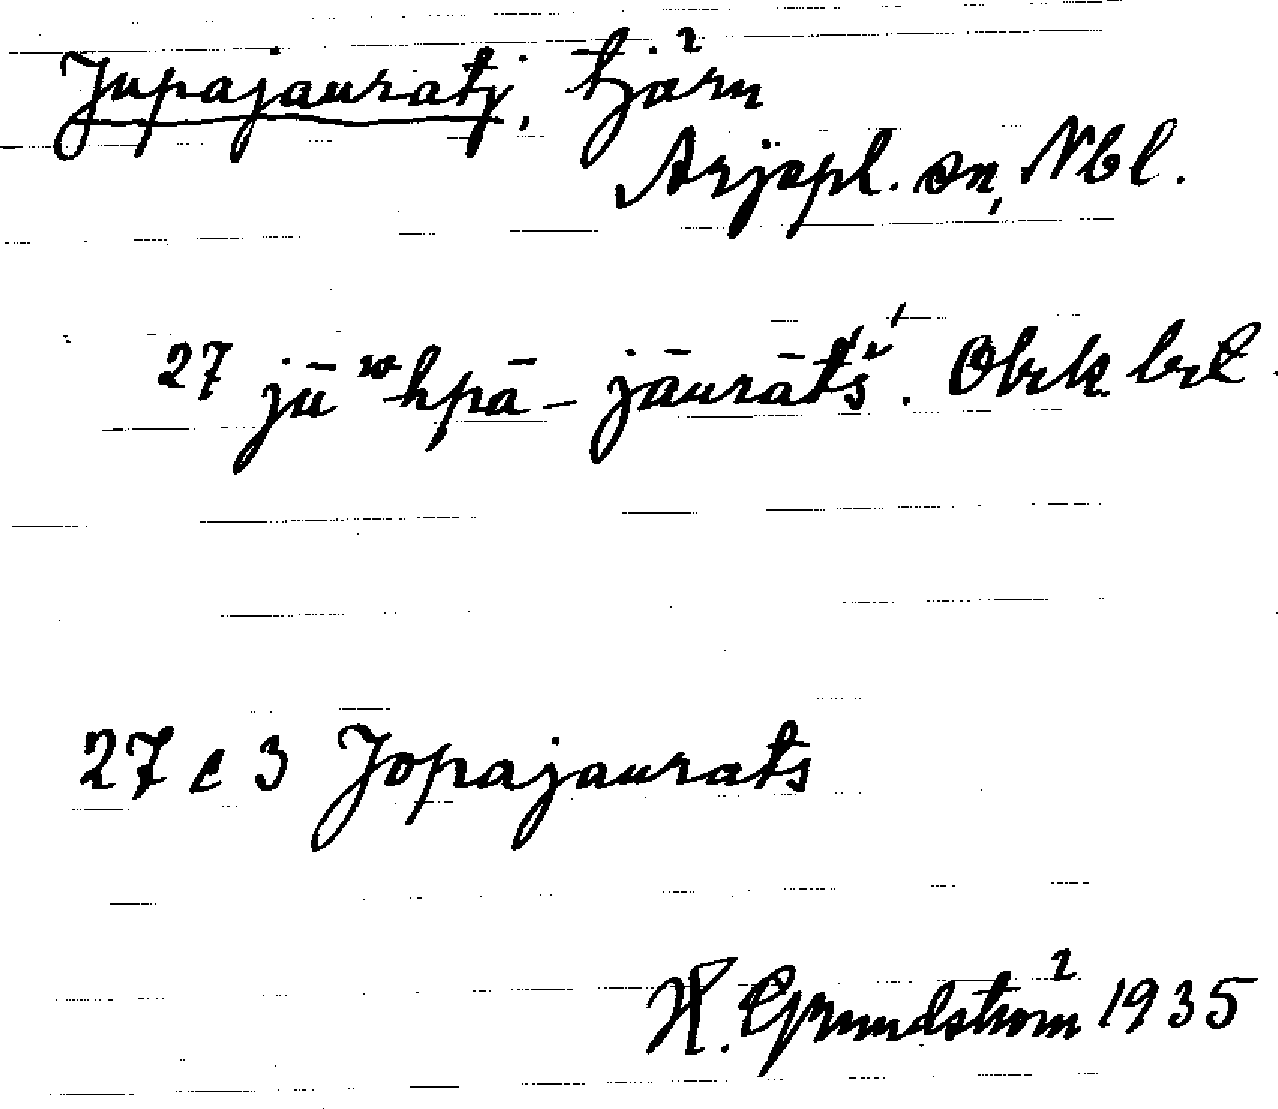 Jupajauratj, tjärn
Arjepl. sn, Nbl.
27 jūʷhpā-jāurātš́. Obekr bel.
27 c 3 Jopajaurats
H. Grundström 1935